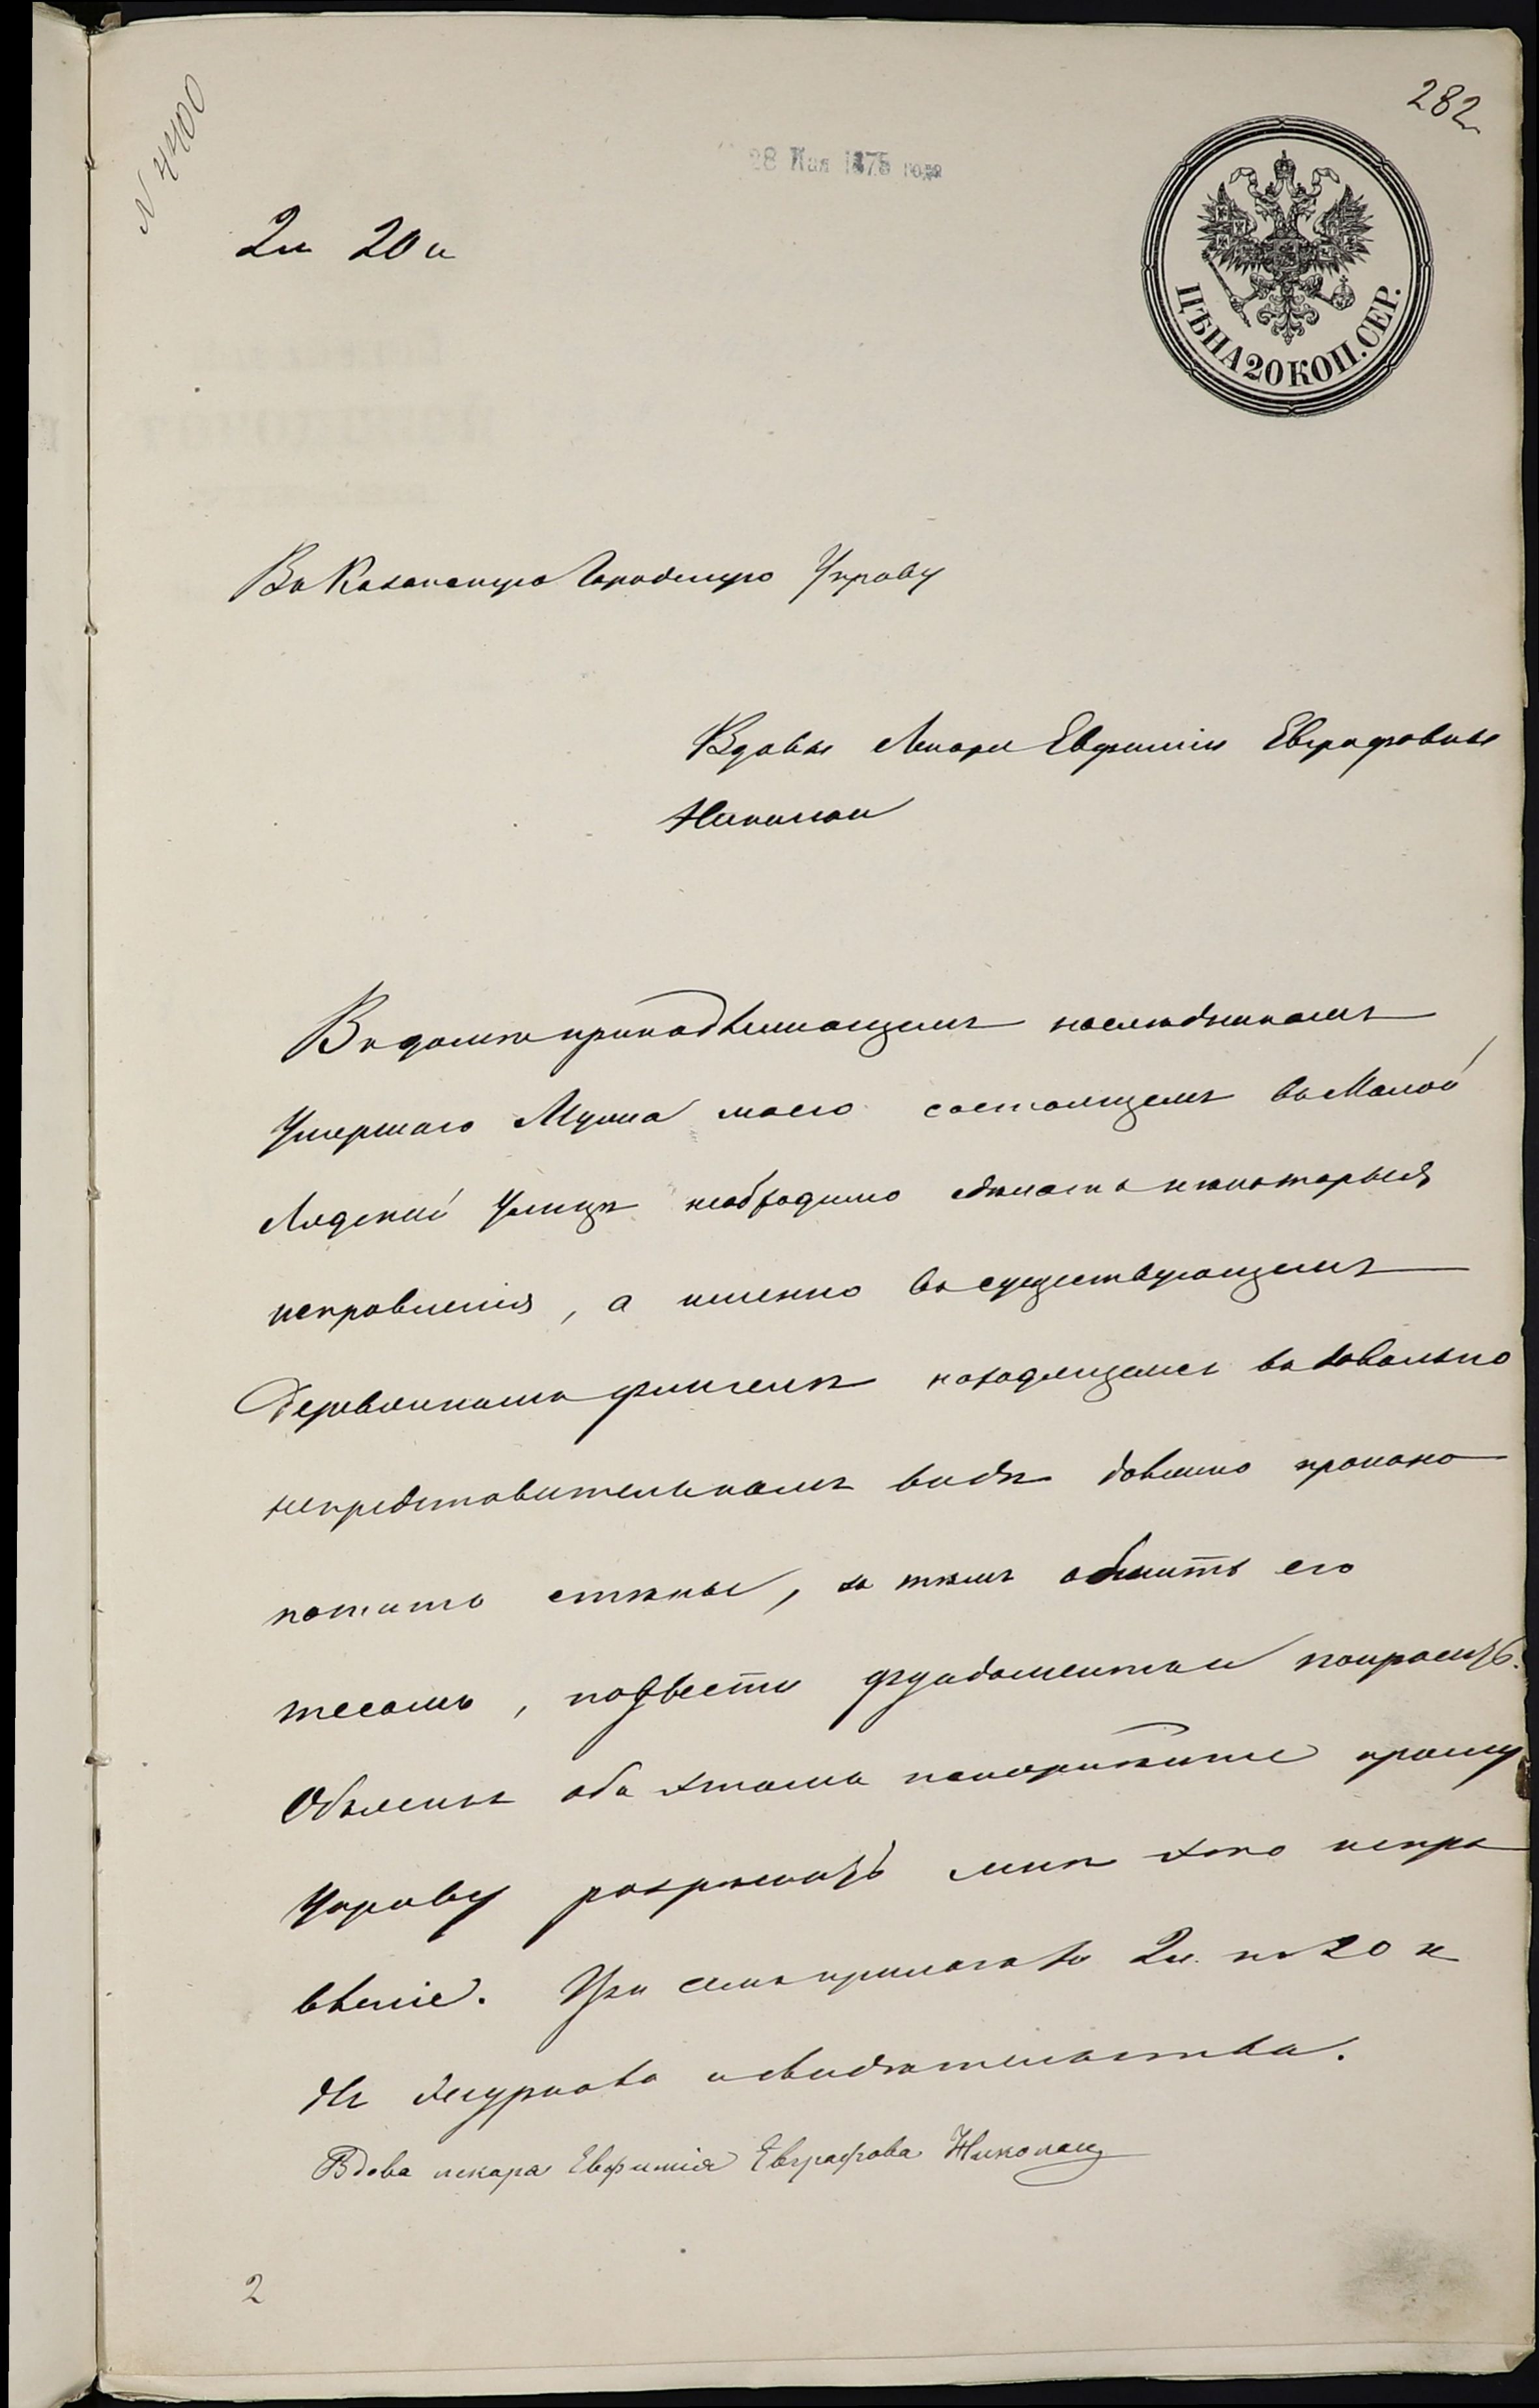 282
N 4400
28 Мая 1875 года
2л 20 к
ЦѢНА 20 КОП. СЕР.
Въ Казанскую Городскую Управу
Вдовы Лекаря Евфиміи Евграфовны
Въ домѣ принадлежащемъ наслѣдникамъ
Умершаго Мужа моего состоящемъ въ Малой
Лядской Улицѣ необходимо сдѣлать нѣкоторыя
исправленія, а именно въ существующемъ
деревянномъ флигелѣ находящемся въ довольно
непредставительномъ видѣ должно проконо
патить стѣны, за тѣмъ обшить его
тесомъ, подвести фундаментъ и покрасить.
Объясняя объ этомъ покорнѣйше прошу
Управу разрѣшить мнѣ это испра
вленіе. При семъ прилагаю 2 л. по 20 к
для журнала и свидѣтельства.
Вдова лекаря Евфимія Евграфова
2